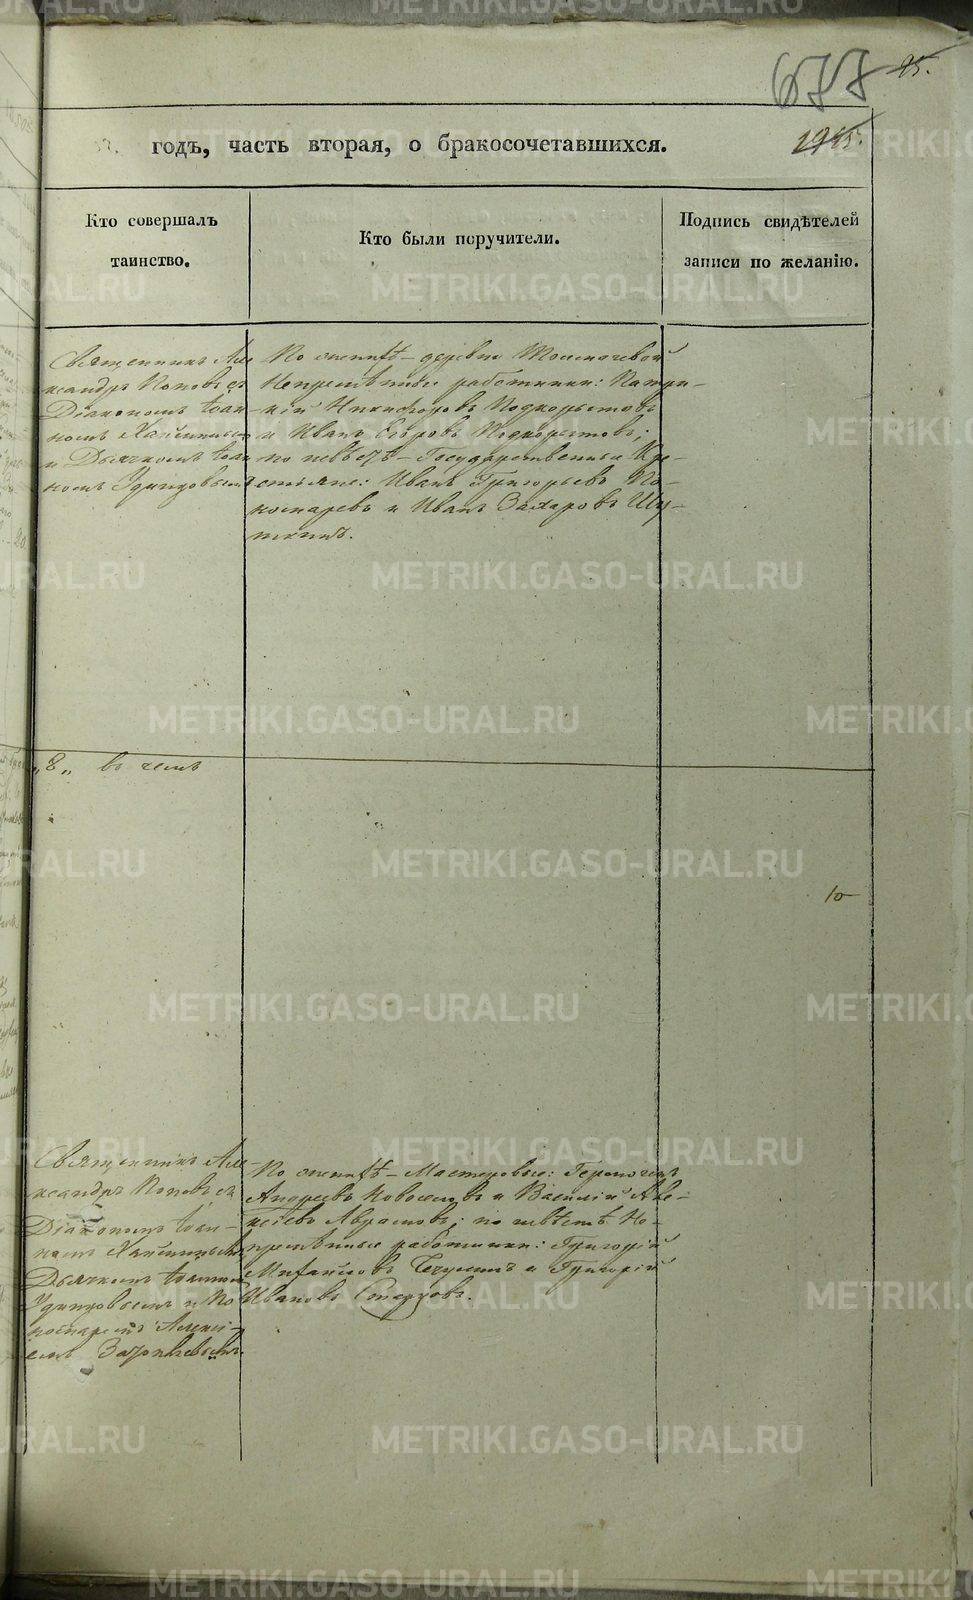 677 25.
годъ, часть вторая, о бракосочетавшихся.
Кто совершалъ
таинство.
Кто были поручители.
Подпись свидѣтелей
записи по желанію.
Священникъ Але
ксандръ Поповъ съ
Діакономъ Іоан-
номъ
и Дьячкомъ Іоан
номъ Удинцовымъ
По женихѣ – деревни Толмачевой
Непремѣнные работники: Патри-
кій Никифоровъ Подкорытовъ
и Иванъ Егоровъ Подкорытовъ;
по невѣстѣ – Государственные Кре-
стьяне: Иванъ Григорьевъ По-
номаревъ и Иванъ Захаровъ Шу-
„8„ въ чемъ
10
Священникъ Але-
ксандръ Поповъ съ
Діакономъ Іоан-
номъ
Дьячкомъ Іоанномъ
Удинцовымъ и По
номаремъ Алексі-
емъ
По женихѣ – Мастеровые:
Андреевъ Новоселовъ и Василій Але-
ксіевъ по невѣстѣ Не-
премѣнные работники: Григорій
Михайловъ и Григорій
Ивановъ
METRIKI.GASO-URAL.RU